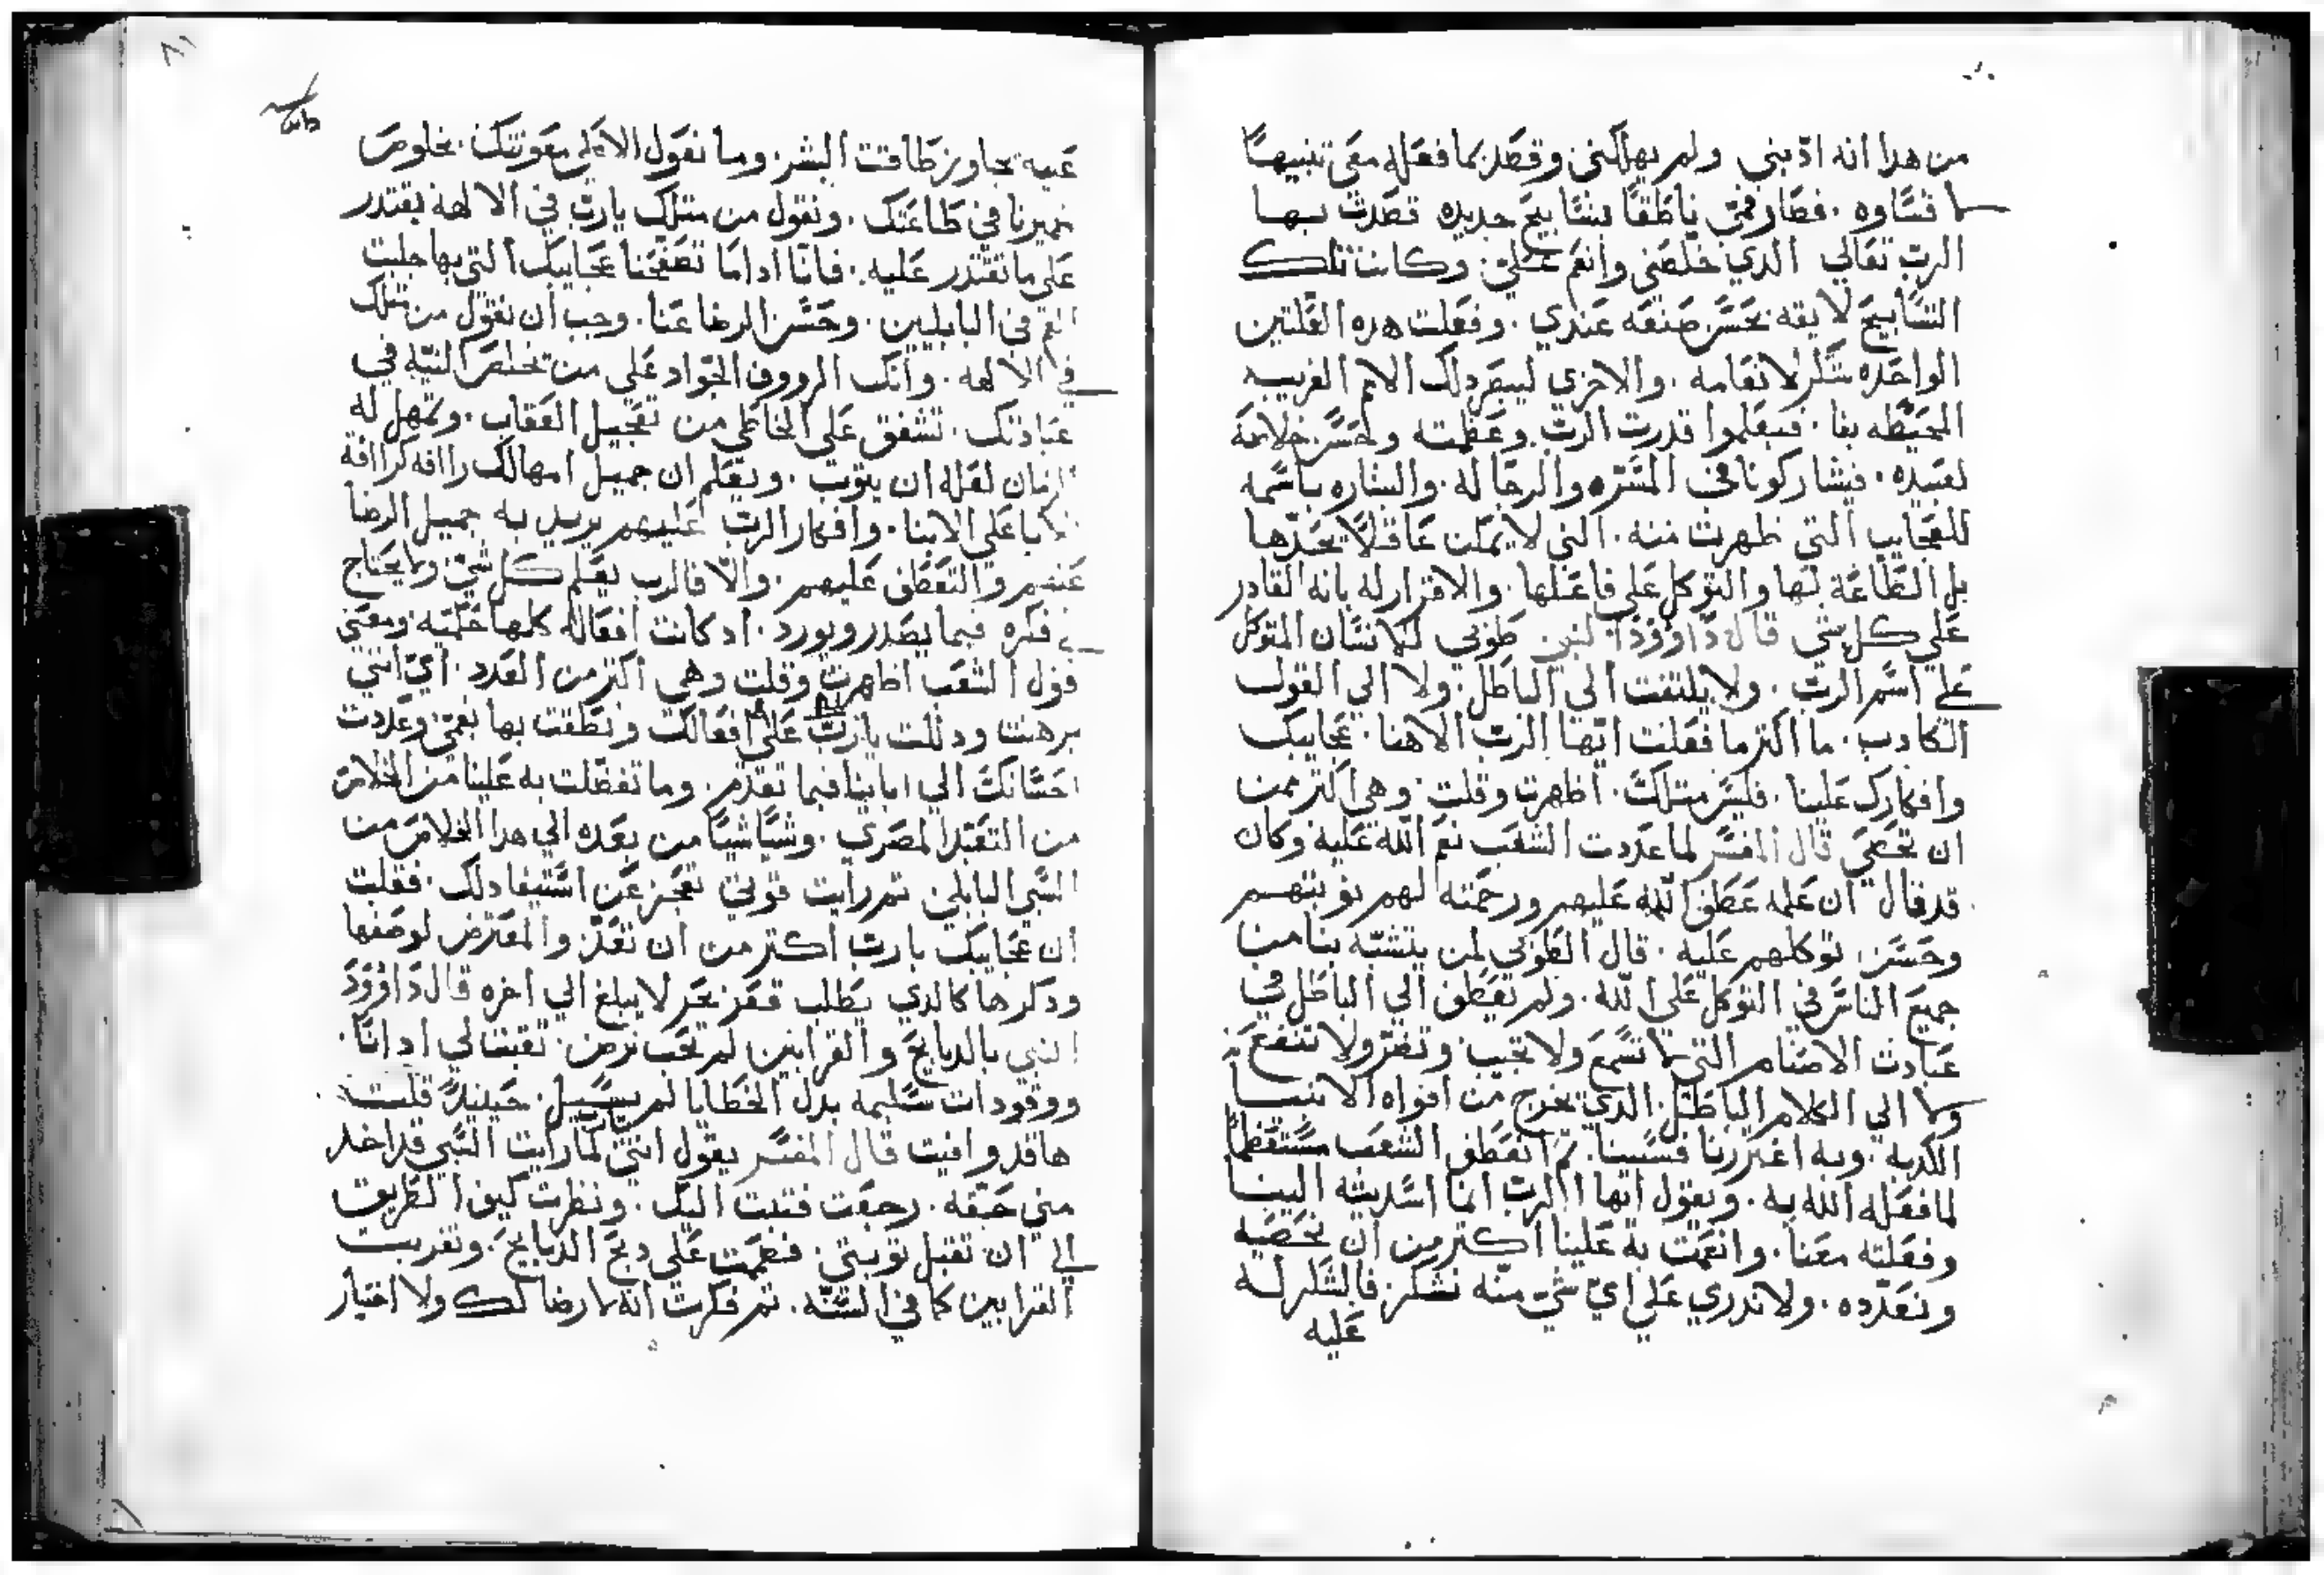 من هدا انه ادّبني ولم يهلكني وقصد بما فعله معي تنبيهًا
لا قساوه . فصار فمي ناطقًا بتسابيح جديده قصدت بها
الرب تعالي الدي خلصني وانعم علي وكانت تلك
التسابيح لايقه بحسن صنعه عندي . وفعلت هده الفعلتين
الواحده شكر لانعامه . والاخري ليبصر دلك الامم الغريبه
المحيطه بنا . فيعلموا قدرت الرب وعظمته ولحسن خلاصه
لعبيده . فيشاركونا في المسره والرجا له . والبشاره باسمه
للعجايب التي ظهرت منه . التي لا يمكن عاقلًا يجحدها
بل الطاعة لها والتوكل علي فاعلها . والاقرار له بانه القادر
علي كل شي قال داوود النبي طوبي للانسان المتوكل
علي اسم الرب . ولا يلتفت الي الباطل . ولا الي القول
الكادب . ما اكتر ما فعلت ايّها الرب الاهنا . عجايبك
وافكارك علينا . فليس متلك . اظهرت وقلت . وهي اكتر من
ان تحصي قال المفسر لما عددت الشعب نعم الله عليه وكان
قد قال ان علة عطف الله عليهم ورحمته لهم توبتهم
وحسن توكلهم عليه . قال الطوبي لمن يتشبّه بنا من
جميع الناس في التوكل علي الله . ولم يعطف الي الباطل في
عبادت الاصنام التي لا تسمع ولا تجيب وتضرّ ولا تنفع
ولا الي الكلام الباطل الدي يخرج من افواه الانبيا
الكدبه . وبه اغتررنا فسبينا . تم انعطف الشعب مستعظمًا
لما فعله الله به . ويقول ايها الرب انما اسديته الينا
وفعلته معنا . وانعمت به علينا اكتر من ان نحصيه
ونعدّده . ولا ندري علي ايّ شي منه نشكر فالشكر له
عليه
عليه يجاوز طاقت البشر . وما نقول الا علي معونتك . بخلوص
ضميرنا في طاعتك . ونقول من متلك يارب في الالهة يقتدر
علي ما تقتدر عليه . فانا اداما تصفحنا عجايبك التي بها جلبت
النقم في البابليين . وحسن الرضا عنا . وجب ان نقول من متلك
في الالهه . وانك الرووف الجواد علي من تخلص النيّه في
عبادتك . تشفق علي الخاطي من تعجيل العقاب . وتمهل له
الزمان لعله ان يتوب . ويعلم ان جميل امهالك راافه كراافة
الابا علي الابنا . وافكار الرب عليهم يريد به جميل الرضا
عنهم والتعطف عليهم . والّا فالرب يعلم كل شي ولا يحتاج
الي فكره فيما يصدر ويورد . اد كانت افعاله كلها حكميه ومعني
قول الشعب اظهرت وقلت وهي اكتر من العدد . اي انني
برهنت ودللت يارب علي افعالك ونطقت بها بفمي وعددت
احسانك الي اباينا فيما تقدم . وما تفضلت به علينا من الخلاص
من التعبد المصري . وشيا شيا من بعده الي هدا الخلاص من
السبي البابلي . تم رايت قوتي تعجز عن استيفا دلك . فقلت
ان عجايبك يارب اكتر من ان تعدّ والمعترض لوصفها
ودكرها كالدي يطلب قعر بحر لا يبلغ الي اخره قال داوود
النبي بالدبايح والقرابين لم تحب ترض . تقبت لي ادانا .
ووقودات سليمه بدل الخطايا لم يسيل . حينيدً قلت
هاقد وافيت قال المفسر يقول انني لما رايت السبي قد اخد
مني حقه . رجعت فتبت اليك . ونظرت كيف الطريق
الي ان تقبل توبتي . فعزمت علي دبح الدبايح . وتقريب
القرابين كما في السنّه . تم فكرت انه لا رضا لك ولا اختيار